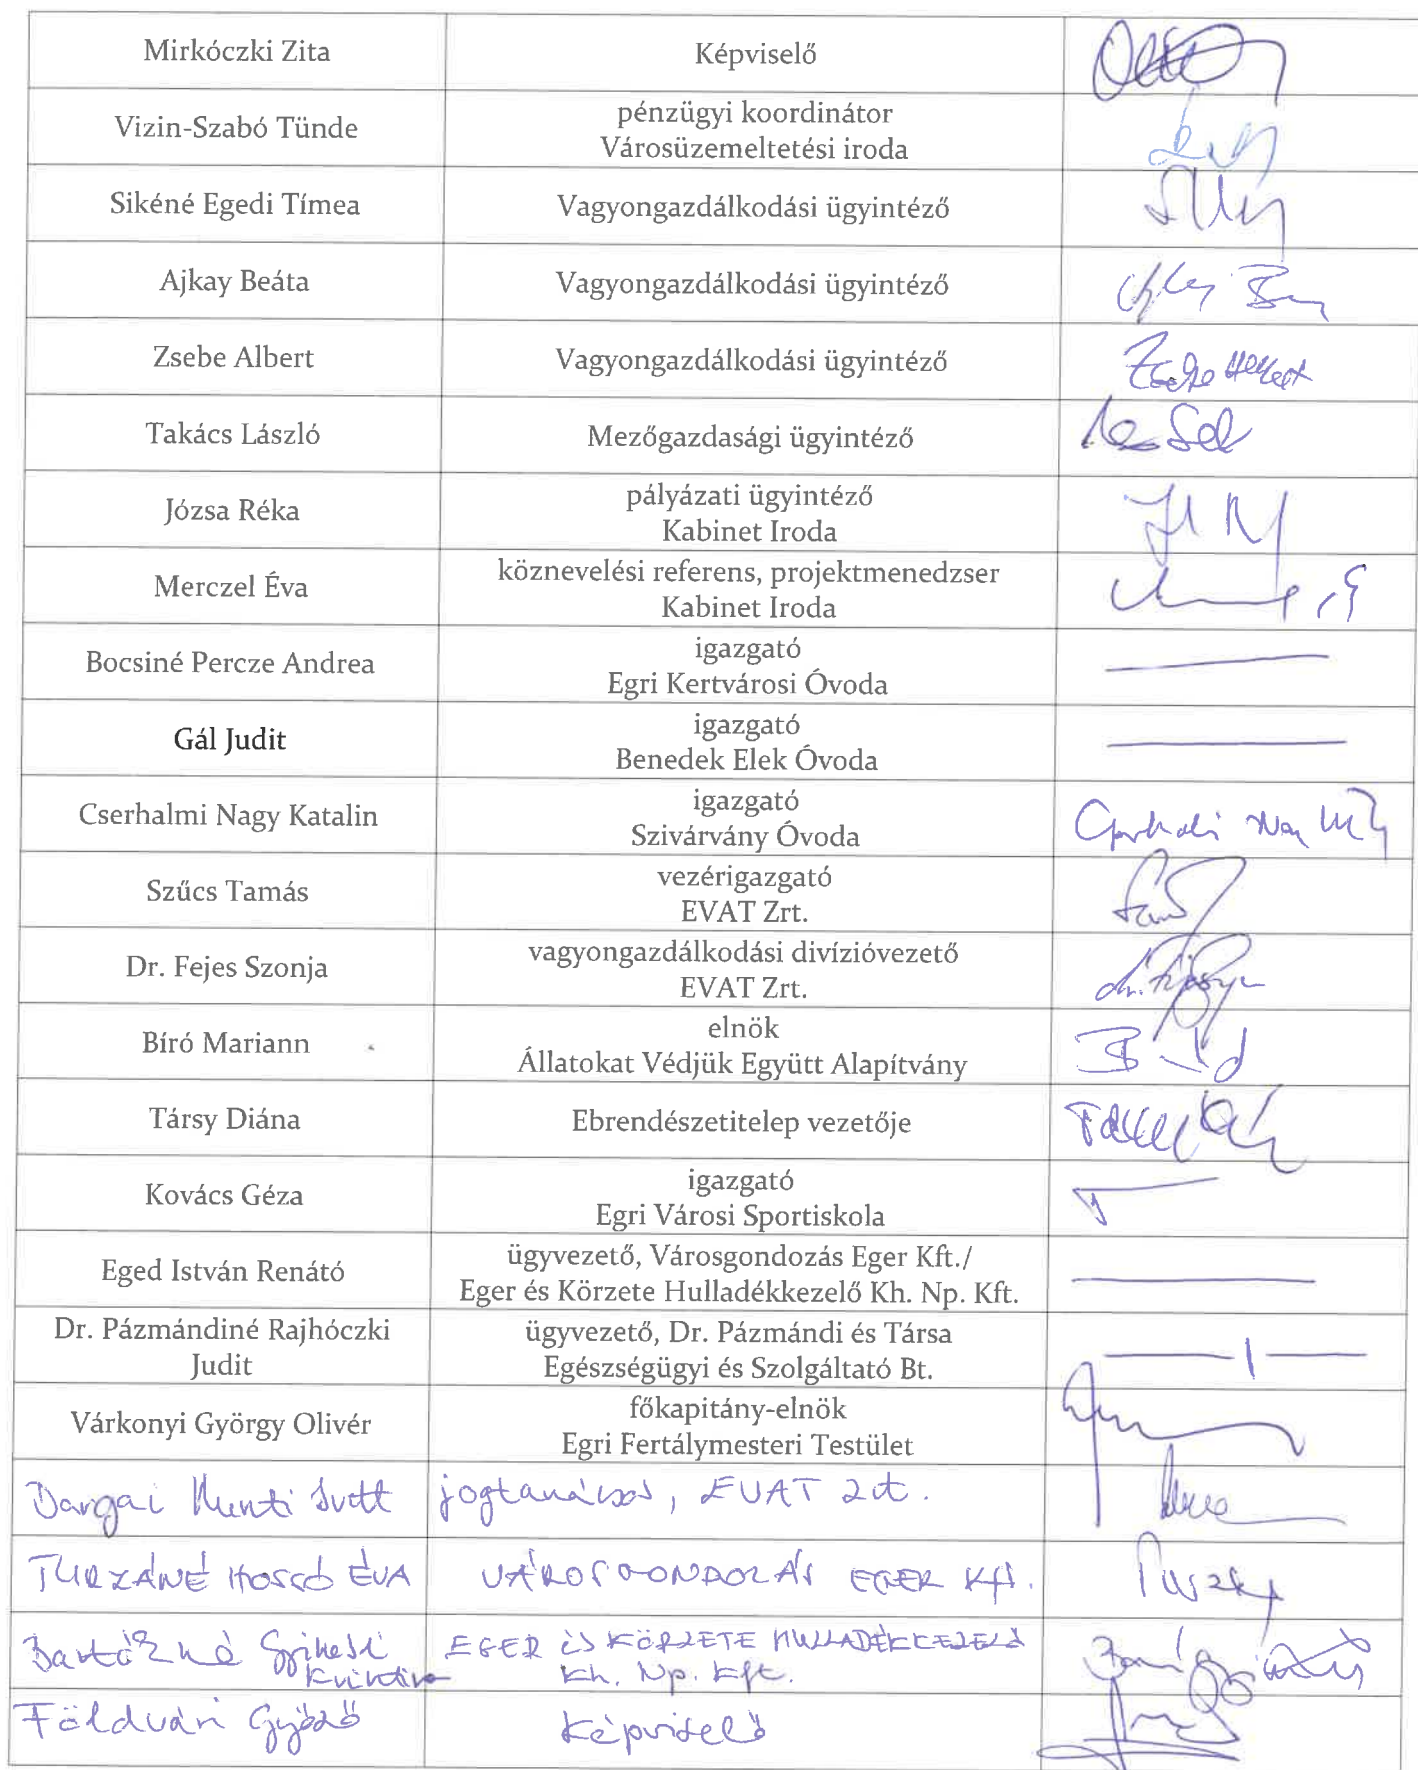 Mirkóczki Zita
Képviselő
Vizin-Szabó Tünde
pénzügyi koordinátor
Városüzemeltetési iroda
Sikéné Egedi Tímea
Vagyongazdálkodási ügyintéző
Ajkay Beáta
Vagyongazdálkodási ügyintéző
Zsebe Albert
Vagyongazdálkodási ügyintéző
Takács László
Mezőgazdasági ügyintéző
Józsa Réka
pályázati ügyintéző
Kabinet Iroda
Merczel Éva
köznevelési referens, projektmenedzser
Kabinet Iroda
Bocsiné Percze Andrea
igazgató
Egri Kertvárosi Óvoda
Gál Judit
igazgató
Benedek Elek Óvoda
Cserhalmi Nagy Katalin
igazgató
Szivárvány Óvoda
Szűcs Tamás
vezérigazgató
EVAT Zrt.
Dr. Fejes Szonja
vagyongazdálkodási divízióvezető
EVAT Zrt.
Bíró Mariann
elnök
Állatokat Védjük Együtt Alapítvány
Társy Diána
Ebrendészetitelep vezetője
Kovács Géza
igazgató
Egri Városi Sportiskola
Eged István Renátó
ügyvezető, Városgondozás Eger Kft./
Eger és Körzete Hulladékkezelő Kh. Np. Kft.
Dr. Pázmándiné Rajhóczki
Judit
ügyvezető, Dr. Pázmándi és Társa
Egészségügyi és Szolgáltató Bt.
Várkonyi György Olivér
főkapitány-elnök
Egri Fertálymesteri Testület
Dargai
jogtanácsos, EVAT Zrt.
ÉVA
VÁROSGONDOZÁS EGER Kft.
EGER ÉS KÖRZETE HULLADÉKKEZELŐ
Kh. Np. Kft.
Földvári Győző
Képviselő